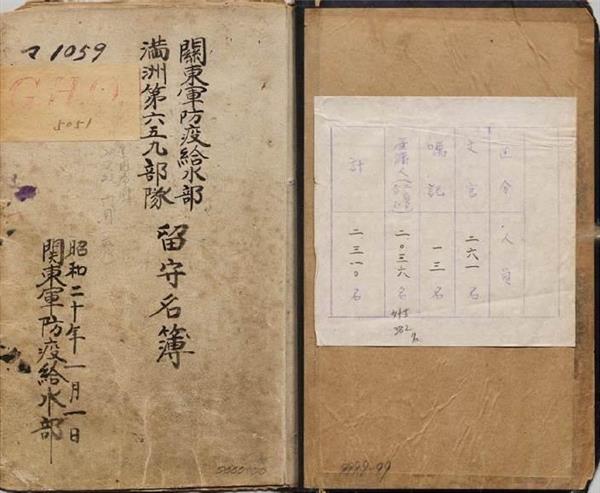 マ1059
關東軍防疫給水部
満洲第六五九部隊
留守名簿
G.A.
5051
昭和二十年一月一日
関東軍防疫給水部
区分 人員
文官 二六一名
嘱託 一三名
二〇三六名
計 二三一〇名
382